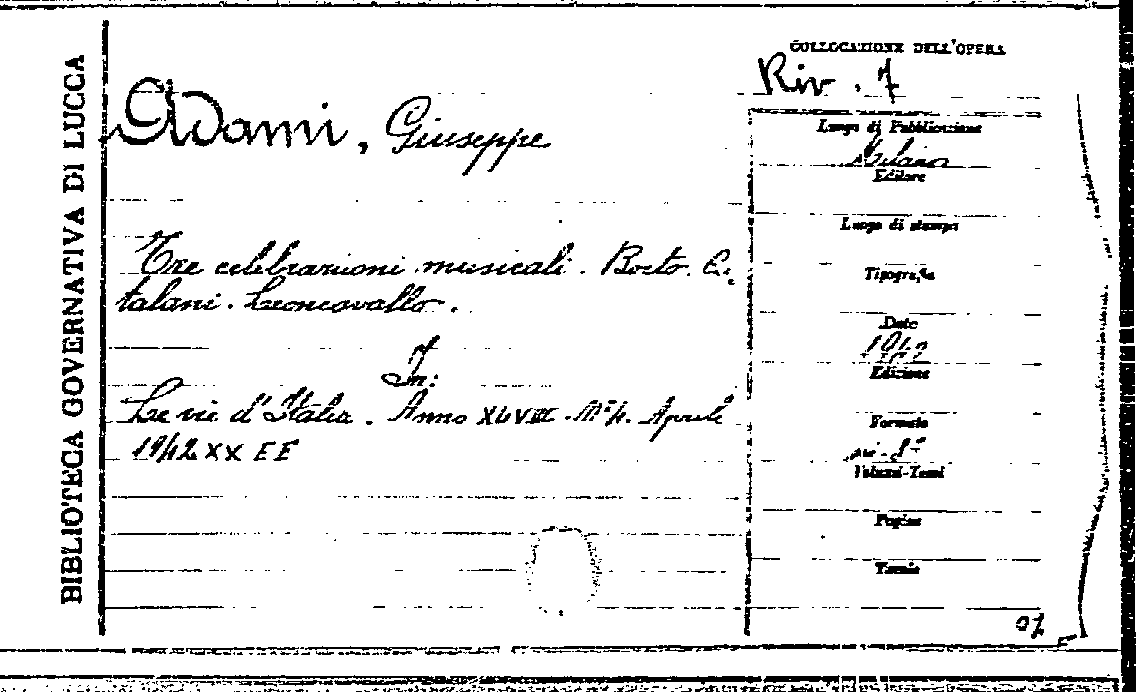 BIBLIOTECA GOVERNATIVA DI LUCCA
COLLOCAZIONE DELL'OPERA
Riv. 7
Adami, Giuseppe
Tre celebrazioni musicali. Boito. Ca
talani. Leoncavallo.
In:
Le vie d'Italia. Anno XLVIII. N° 4. Aprile
1942 XX EF
Luogo di Pubblicazione
Milano
Editore
Luogo di stampa
Tipografia
Date
1942
Edizione
Formato
in-8°
Volumi-Tomi
Pagine
Tavole